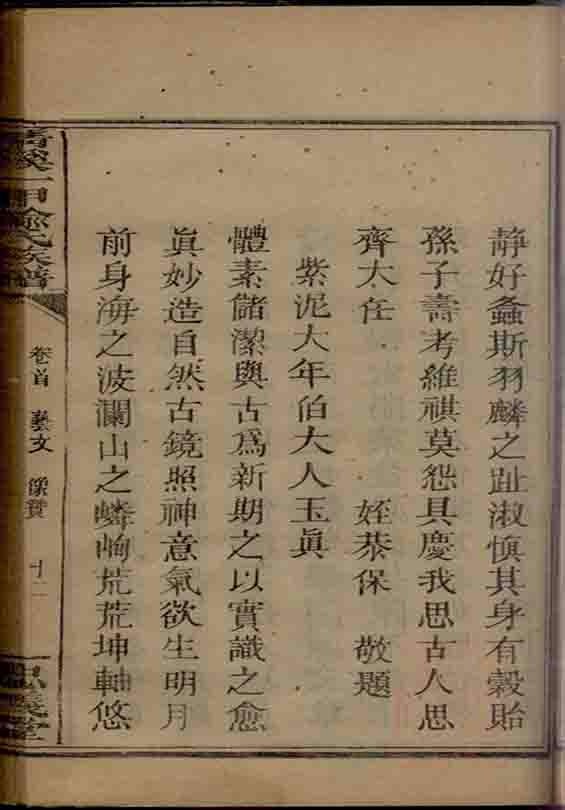 靜好螽斯羽麟之趾淑慎其身有穀貽
孫子壽考維祺莫怨具慶我思古人思
齊太任 姪恭保 敬題
紫泥大年伯大人玉眞
體素儲潔與古爲新期之以實識之愈
眞妙造自然古鏡照神意氣欲生明月
前身海之波瀾山之嶙峋荒荒坤軸悠
溪一甲俞氏族譜
卷首 藝文 像贊 十二
思義堂